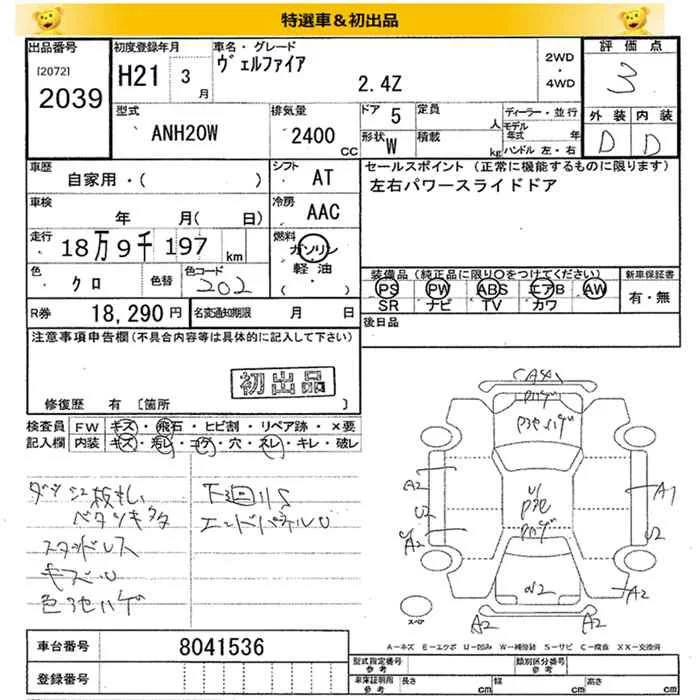 特選車&初出品
出品番号
[2072]
2039
初度登録年月
H21 3 月
車名・グレード
ヴェルファイア
2.4Z
2WD
・
4WD
評価点
3
外装 内装
D D
型式
ANH20W
排気量
2400 CC
ドア 5
定員 人
形状 W
積載 kg
ディーラー・並行
モデル年式 年
ハンドル 左・右
車歴
自家用・( )
シフト
AT
車検
年 月( 日)
冷房
AAC
走行
18万9千197 km
燃料
ガソリン
軽油
( ・ )
色
クロ
色替
色コード
202
セールスポイント (正常に機能するものに限ります)
左右パワースライドドア
装備品(純正品に限り○をつけてください)
PS PW ABS エアB AW
SR ナビ TV カワ
新車保証書
有・無
R券 18,290円
名変通知期限 月 日
後日品
注意事項申告欄(不具合内容等は具体的に記入して下さい)
初出品
修復歴 有 [箇所 ]
検査員 FW キズ・飛石・ヒビ割・リペア跡・×要
記入欄 内装 キズ・汚レ・コゲ・穴・スレ・キレ・破レ
ベタツキタタ
スタッドレス
キズ U
色アセハゲ
下回りS
エンドパネルU
A2
U2
A2
A1
U2
A2 A2
スペア
A=キズ E=エクボ U=凹ミ W=補修跡 S=サビ C=腐食 XX=交換済
車台番号
8041536
登録番号
型式指定番号 参考
類別区分番号 参考
車庫証明用 参考
長さ cm
幅 cm
高さ cm